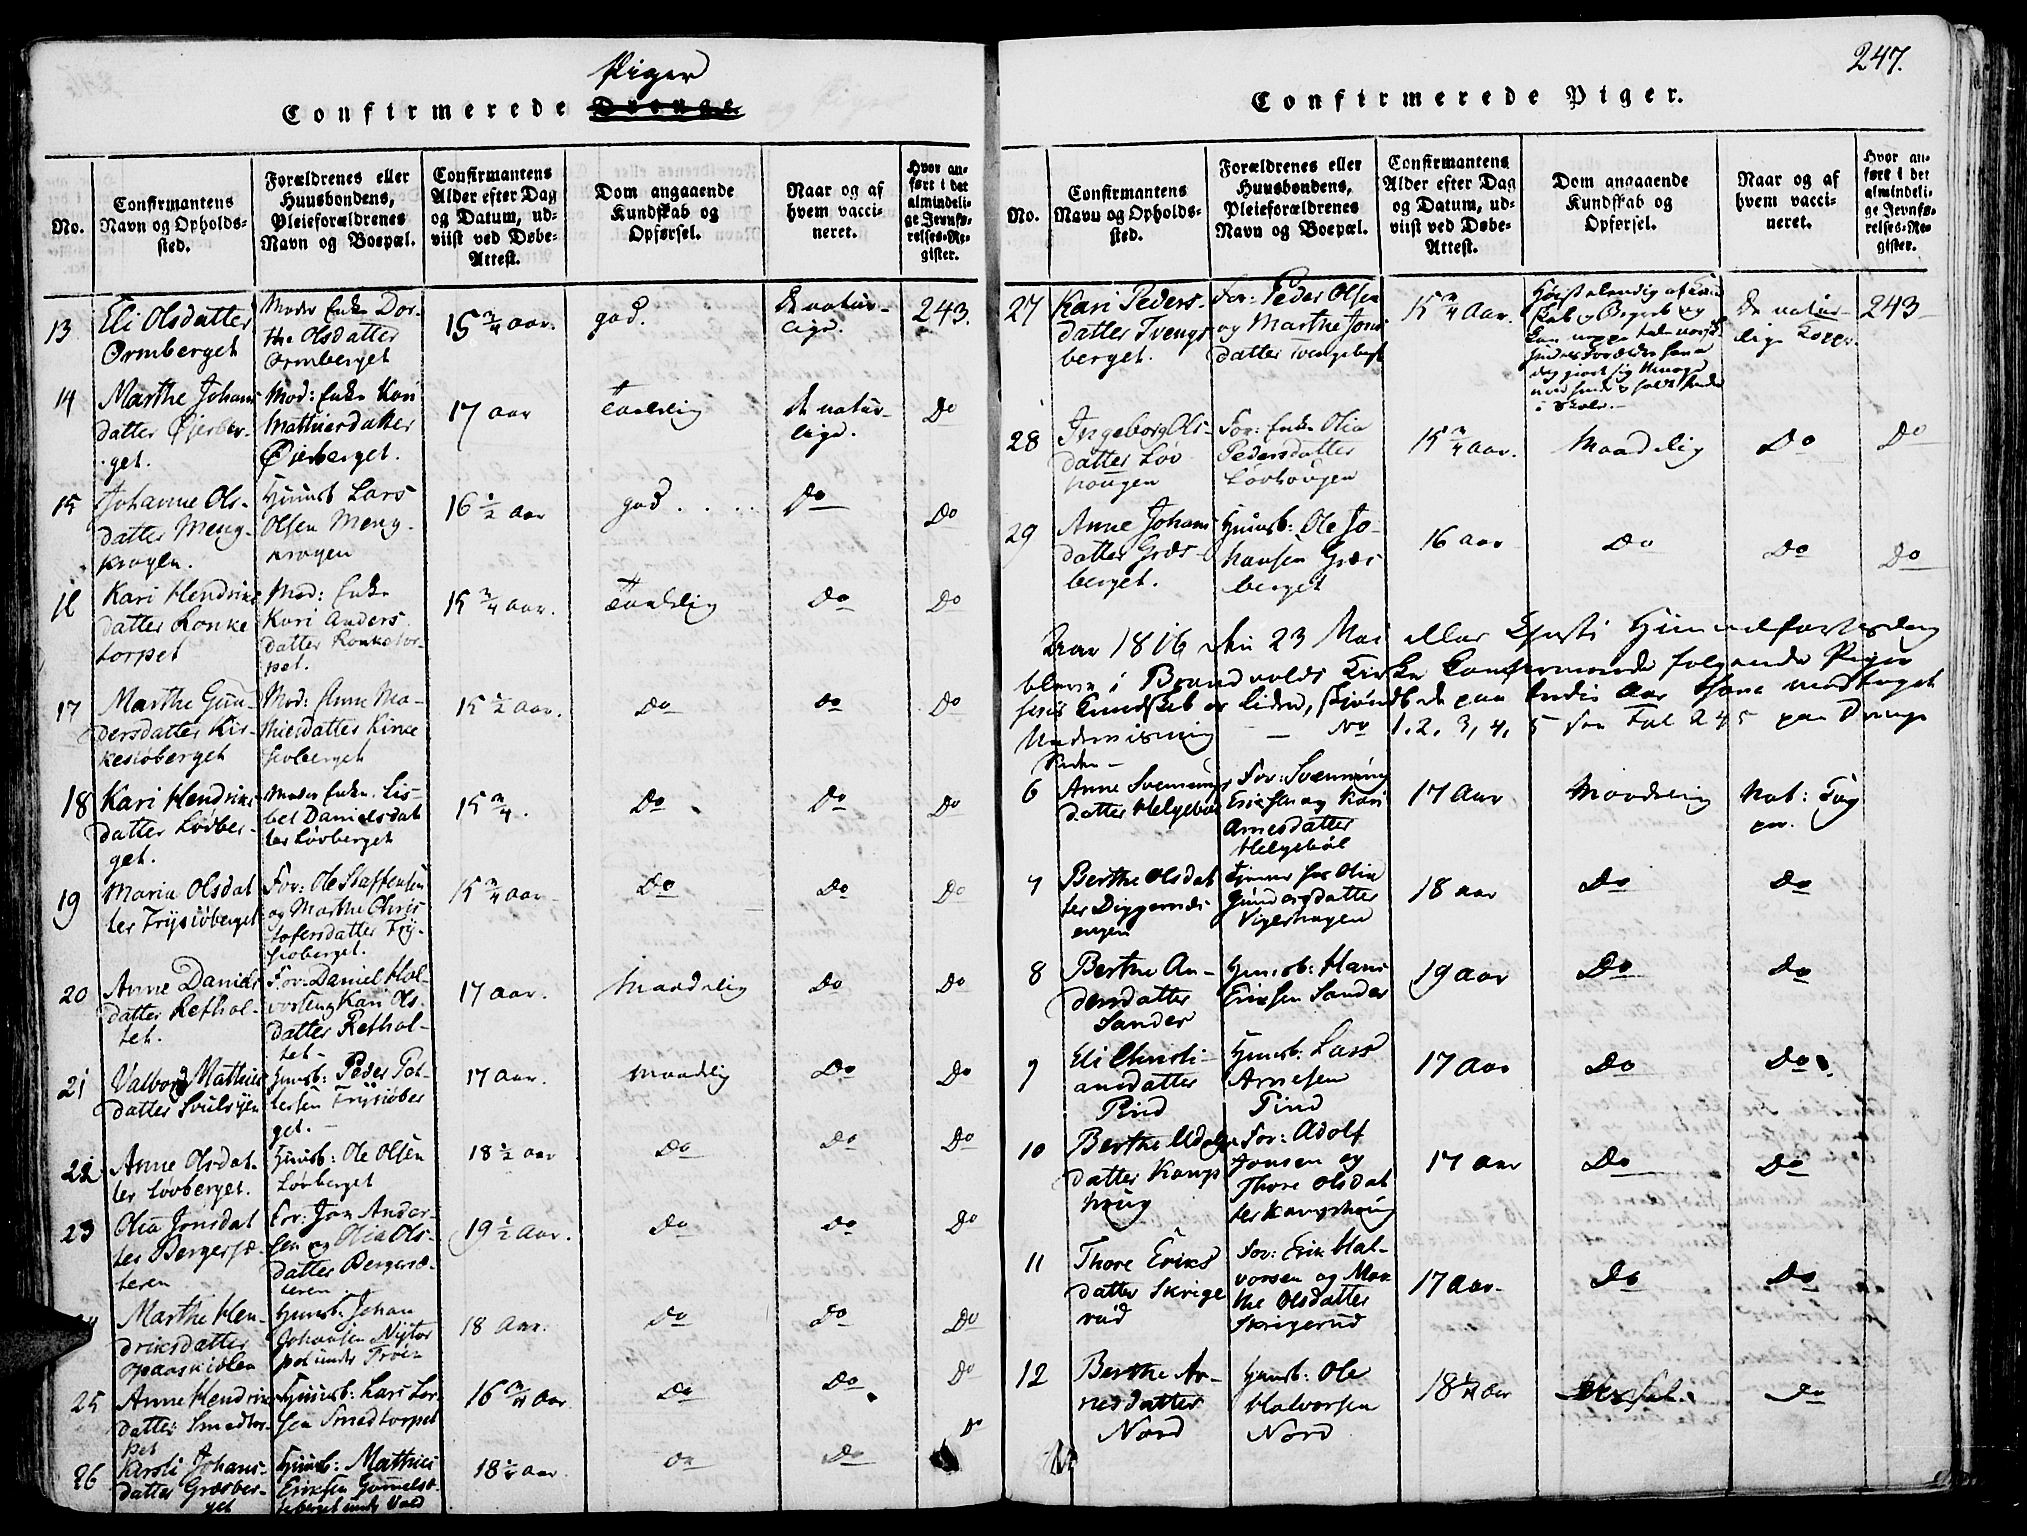 Piger
Confirmerede Drenge
No.
Confirmantens
Navn og Opholds-
sted.
Forældrenes eller
Huusbondens,
Pleieforældrenes
Navn og Boepæl.
Confirmantens
Alder efter Dag
og Datum, ud-
viist ved Døbe-
Attest.
Dom angaaende
Kundskab og
Opførsel.
Naar og af
hvem vacci-
neret.
Hvor an-
ført i det
almindeli-
ge Jevnfø-
relses-Re-
gister.
13
Eli Olsdatter
Ormberget
Moder Enke Dor-
the Olsdatter
Ormberget
15 3/4 aar.
god.
De natur-
lige.
243.
14
Marthe Johans
datter Øjerber-
get.
Mod: Enke Kari
Mathiesdatter
Øierberget.
17 aar
Taalelig
de natur-
lige.
Do
15
Johanne Ols-
datter Meng-
krogen.
Huusb Lars
Olsen Meng-
krogen
16 1/2 aar
god
Do
Do
16
Kari Hendriks
datter Ronke
torpet
Mod: Enke
Kari Anders
datter Ronketor-
pet.
15 3/4 aar.
Taalelig
Do
Do
17
Marthe Gun-
dersdatter Kir-
kesiøberget
Mod: Anne Ma-
thiesdatter Kirke
siøberget
15 1/2 aar.
Do
Do
Do
18
Kari Hendriks
datter Lövber-
get.
Moder Enke Lis-
bet Danielsdat
ter Lövberget
15 3/4.
Do
Do
Do
19
Maria Olsdat
ter Frysiøberget
For: Ole Staffensen
og Marthe Chris
tofersdatter Fry-
siøberget.
15 3/4 aar
Do
Do
Do
20
Anne Daniels
datter Rethol-
tet.
For: Daniel Hal-
vorsen og Kari Ols-
datter Rethol-
tet
17 aar.
Maadelig
Do
Do
21
Valborg Mathies
datter
Huusb: Peder Pet-
tersen Frysiøber
get.
17 aar.
Maadelig
Do
Do
22
Anne Olsdat-
ter Lövberget.
Huusb: Ole Olsen
Lövberget
18 1/2 aar
Do
Do
Do
23
Olia Jonsdat
ter Bergersæ-
teren
For: Jon Ander-
sen og Olia Ols-
datter Bergersæ-
teren
19 1/2 aar.
Do
Do
Do
Marthe Hen-
driksdatter
Huusb: Johan
Johansen
18 aar.
Do
Do
Do
25
Anne Hendriks
datter Smedtor-
pet
Huusb: Lars Lar-
sen Smedtorpet
16 3/4 aar.
Do
Do
Do
26
Kersti Johans-
datter Græsber-
get
Huusb: Mathies
Eriksen
18 1/4 aar.
Do
Do
Do
247.
Confirmerede Piger.
No.
Confirmantens
Navn og Opholds-
sted.
Forældrenes eller
Huusbondens,
Pleieforældrenes
Navn og Boepæl.
Confirmantens
Alder efter Dag
og Datum, ud-
viist ved Døbe-
Attest.
Dom angaaende
Kundskab og
Opførsel.
Naar og af
hvem vacci-
neret.
Hvor an-
ført i det
almindeli-
ge Jevnfø-
relses-Re-
gister.
27
Kari Peders-
datter Tvengs
berget.
For: Peder Olsen
og Marthe Jons
datter Tvengsberget
15 3/4 Aar.
De natur-
lige Kopper
243
28
Ingeborg Ols-
datter Løv
hougen
For: Enke Olia
Pedersdatter
Løvhougen
15 3/4 aar.
Maadelig
Do
Do
29
Anne Johans
datter Græs-
berget.
Huusb: Ole Jo-
hansen Græs
berget
16 aar
Do
Do
Do
Aar 1816 den 23 Mai eller Christi Himmelfartsdag
bleve i Brandvolds Kirke Confirmerede følgende Piger
hvis Kundskab er liden, skjøndt de paa andet Aar have modtaget
Underviisning — No 1. 2. 3, 4, 5 see Fol 245 paa Drenge
Siden —
6
Anne Svennungs
datter Helgebøl
For: Svenning
Eriksen og Kari
Arnesdatter
Helgebøl
17 Aar
Maadelig
Nat: Kop
per.
7
Berthe Olsdat
ter Diggernæs
engen
Tjener hos Olia
Gundersdatter
Vigerhagen
18 aar
Do
Do
8
Berthe An-
dersdatter
Sander
Huusb: Hans
Eriksen Sander
19 aar
Do
Do
9
Eli Christi-
ansdatter
Pind
Huusb: Lars
Arnesen
Pind
17 Aar
Do
Do
10
Berthe Adolfs
datter Kangs
houg
For: Adolf
Jonsen og
Thore Olsdat
ter Kangshoug
17 aar
Do
Do
11
Thore Eriks
datter Skrige
rud
For: Erik Hal-
vorsen og Mar
the Olsdatter
Skrigerud
17 Aar.
Do
Do
12
Berthe Ar-
nesdatter
Nord
Huusb: Ole
Halvorsen
Nord
18 1/4 aar
Do